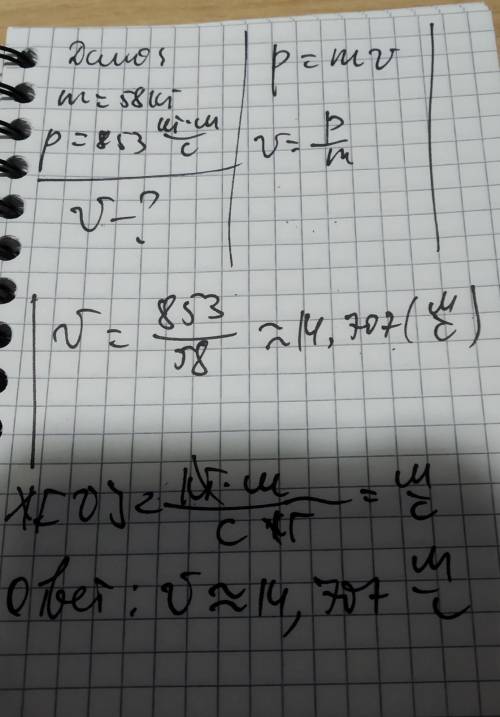 Дано:
m = 58 кг
p = 853 кг·м/с
v - ?
p = mv
v = p/m
v = 853/58 ≈ 14,707 (м/с)
[v] = кг·м/с кг = м/с
Ответ: v ≈ 14,707 м/с